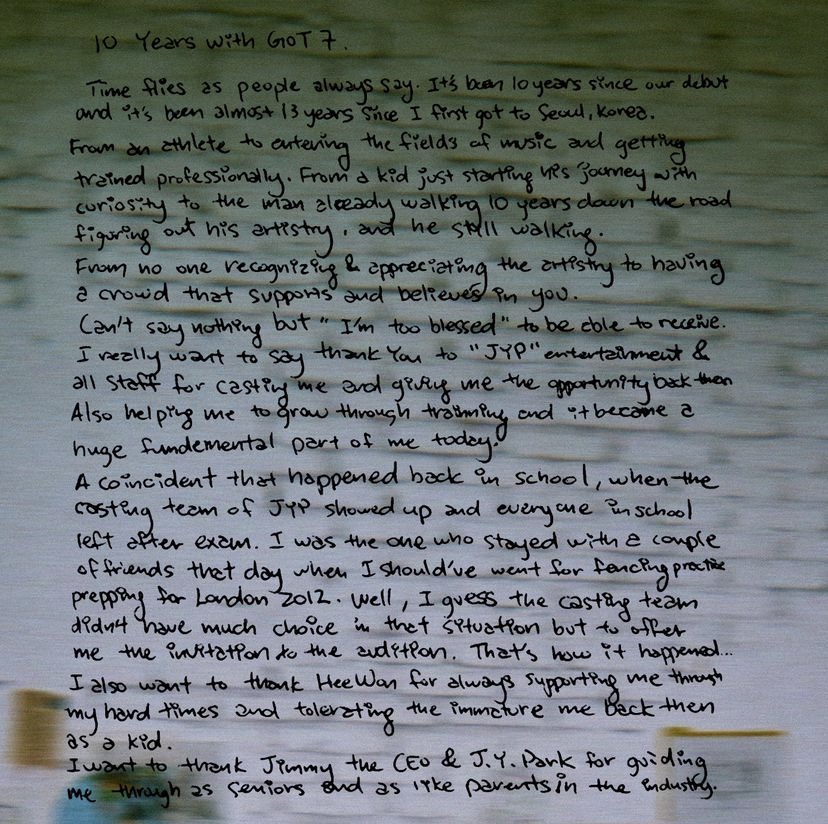 10 Years with GOT 7.
Time flies as people always say. It's been 10 years since our debut
and it's been almost 13 years since I first got to Seoul, Korea.
From an athlete to entering the fields of music and getting
trained professionally. From a kid just starting his journey with
curiosity to the man already walking 10 years down the road
figuring out his artistry, and he still walking.
From no one recognizing & appreciating the artistry to having
a crowd that supports and believes in you.
Can't say nothing but "I'm too blessed" to be able to receive.
I really want to say thank You to "JYP" entertainment &
all staff for casting me and giving me the opportunity back then
Also helping me to grow through trainning and it became a
huge fundemental part of me today.
A coincident that happened back in school, when the
casting team of JYP showed up and everyone in school
left after exam. I was the one who stayed with a couple
of friends that day when I should've went for fencing practice
prepping for London 2012. Well, I guess the casting team
didn't have much choice in that situation but to offer
me the invitation to the audition. That's how it happened...
I also want to thank HeeWon for always supporting me through
my hard times and tolerating the immature me back then
as a kid.
I want to thank Jimmy the CEO & J.Y. Park for guiding
me through as seniors and as like parents in the industry.